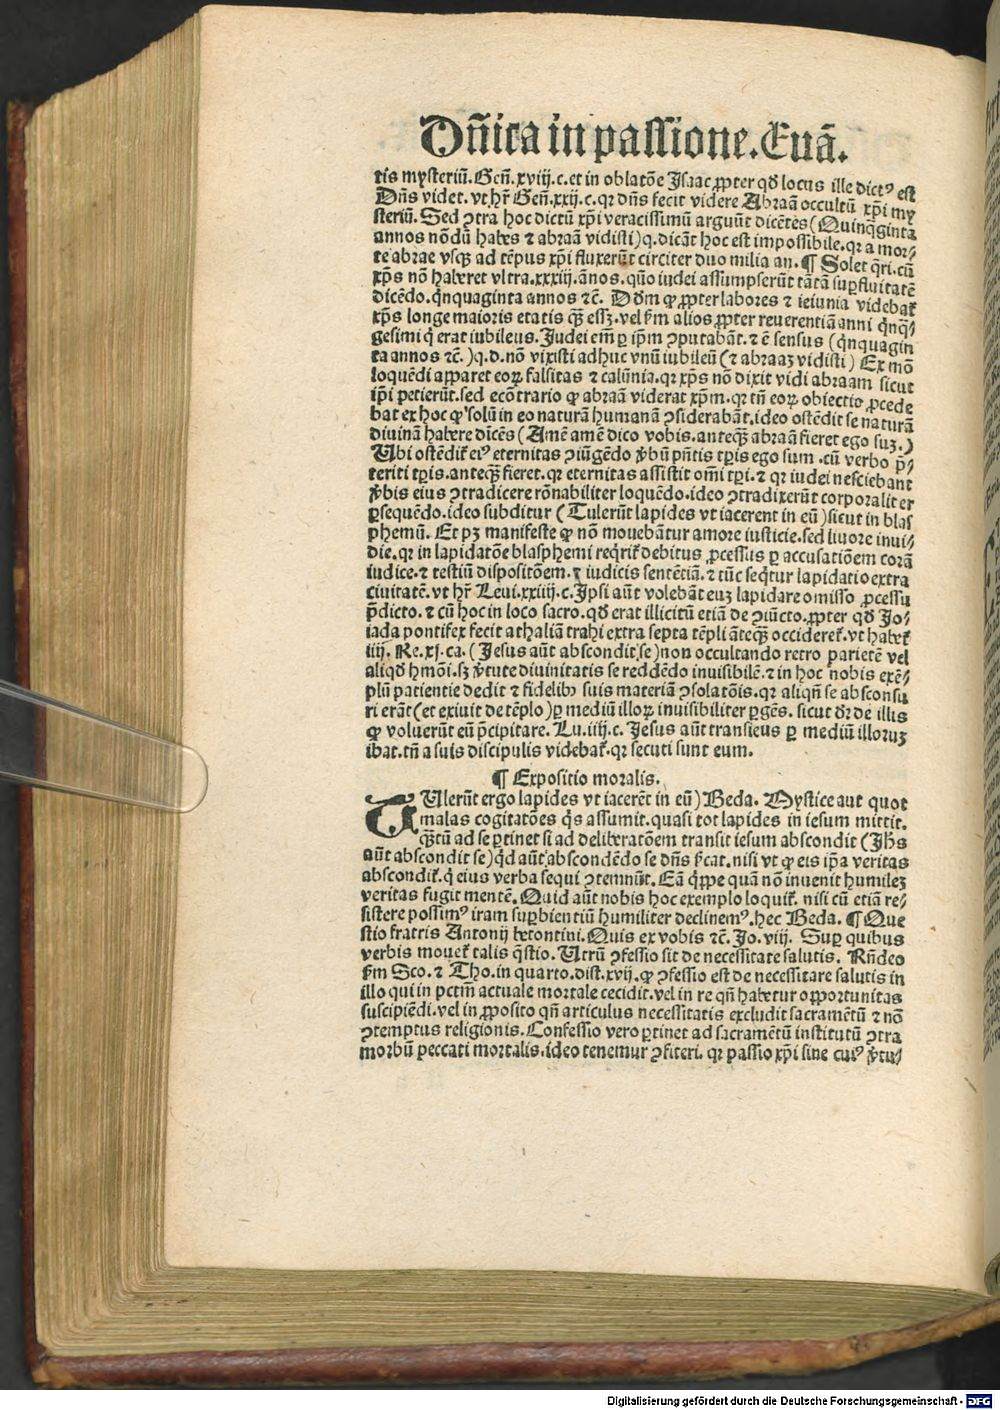 Dñica in passione. Euã.
tis mysteriũ. Geñ. xviij. c. et in oblatõe Isaac ꝓpter qđ locus ille dictꝰ est
Dñs videt. vt hr̃ Geñ. xxij. c. qꝛ dñs fecit videre Abraã occultũ xp̃i my
steriũ. Sed ꝯtra hoc dictũ xp̃i veracissimũ arguũt dicẽtes (Quinq̃ginta
annos nõdũ habes ⁊ abraã vidisti) q. dicãt hoc est impossibile. qꝛ a mor⸗
te abrae vsqꝫ ad tẽpus xp̃i fluxerũt circiter duo milia an. ¶ Solet q̃ri. cũ
xp̃s nõ haberet vltra. xxxiij. ãnos. quõ iudei assumpserũt tãtã suꝑfluitatẽ
dicẽdo. q̃nquaginta annos ⁊c̃. Dđm ꝙ ꝓpter labores ⁊ ieiunia videbat̃
xp̃s longe maioris etatis q̃ꝫ essꝫ. vel f̃m alios ꝓpter reuerentiã anni q̃nq̃⸗
gesimi q̃ erat iubileus. Iudei em̃ ꝑ ip̃m ꝯputabãt. ⁊ ẽ sensus (q̃nquagin
ta annos ⁊c̃.) q. d. nõ vixisti adhuc vnũ iubileũ (⁊ abraaꝫ vidisti) Ex mõ
loquẽdi apparet eoꝝ falsitas ⁊ calũnia. qꝛ xp̃s nõ dixit vidi abraam sicut
ip̃i petierũt. sed ecõtrario ꝙ abraã viderat xp̃m. qꝛ tñ eoꝝ obiectio ꝓcede
bat ex hoc ꝙ solũ in eo naturã humanã ꝯsiderabãt. ideo ostẽdit se naturã
diuinã habere dĩcẽs (Amẽ amẽ dico vobis. anteq̃ꝫ abraã fieret ego suꝫ.)
Ubi ostẽdit̃ eiꝰ eternitas ꝯiũgẽdo v̾bũ pñtis tp̃is ego sum. cũ verbo p̃⸗
teriti tp̃is. anteq̃ꝫ fieret. qꝛ eternitas assistit om̃i tp̃i. ⁊ qꝛ iudei nesciebant
v̾bis eius ꝯtradicere rõnabiliter loquẽdo. ideo ꝯtradixerũt corporaliter
ꝑsequẽdo. ideo subditur (Tulerũt lapides vt iacerent in eũ) sicut in blas
phemũ. Et pꝫ manifeste ꝙ nõ mouebãtur amore iusticie. sed liuore inui⸗
die. qꝛ in lapidatõe blasphemi req̃rit̃ debitus ꝓcessus ꝑ accusatiõem corã
iudice. ⁊ testiũ dispositõem. ⁊ iudicis sentẽtiã. ⁊ tũc seq̃tur lapidatio extra
ciuitatẽ. vt hr̃ Leui. xxiiij. c. Ipsi aũt volebãt euꝫ lapidare omisso ꝓcessu
p̃dicto. ⁊ cũ hoc in loco sacro. qđ erat illicitũ etiã de ꝯiũcto. ꝓpter qđ Jo⸗
iada pontifex fecit athaliã trahi extra septa tẽpli ãteq̃ꝫ occideret̃. vt habet̃
iiij. Re. xj. ca. (Jesus aũt abscondit se) non occultando retro parietẽ vel
aliqđ hmõi. sꝫ v̾tute diuinitatis se reddẽdo inuisibilẽ. ⁊ in hoc nobis exẽ⸗
plũ patientie dedit ⁊ fidelibꝫ suis materiã ꝯsolatõis. qꝛ aliqñ se absconsu
ri erãt (et exiuit de tẽplo) ꝑ mediũ illoꝝ inuisibiliter ꝑgẽs. sicut dr̃ de illis
ꝙ voluerũt eũ p̃cipitare. Lu. iiij. c. Jesus aũt transieus ꝑ mediũ illoruꝫ
ibat. tñ a suis discipulis videbat̃. qꝛ secuti sunt eum.
¶ Expositio moralis.
TUlerũt ergo lapides vt iacerẽt in eũ) Beda. Mystice aut quot
malas cogitatões q̃s assumit. quasi tot lapides in iesum mittit.
q̃ꝫtũ ad se ꝑtinet si ad deliberatõem transit iesum abscondit (Jh̃s
aũt abscondit se) q̃d aũt abscondẽdo se dñs f̃cat. nisi vt ꝙ eis ip̃a veritas
abscondit̃. q̃ eius verba sequi ꝯtemnũt. Eã q̃ppe quã nõ inuenit humileꝫ
veritas fugit mentẽ. Quid aũt nobis hoc exemplo loquit̃. nisi cũ etiã re⸗
sistere possimꝰ iram suꝑbientiũ humiliter declinemꝰ. hec Beda. ¶ Que
stio fratris Antonij betontini. Quis ex vobis ⁊c̃. Jo. viij. Suꝑ quibus
verbis mouet̃ talis q̃stio. Utrũ ꝯfessio sit de necessitate salutis. Rñdeo
f̃m Sco. ⁊ Tho. in quarto. dist. xvij. ꝙ ꝯfessio est de necessitate salutis in
illo qui in pctm̃ actuale mortale cecidit. vel in re qñ habetur opportunitas
suscipiẽdi. vel in ꝓposito qñ articulus necessitatis excludit sacramẽtũ ⁊ nõ
ꝯtemptus religionis. Confessio vero ꝑtinet ad sacramẽtũ institutũ ꝯtra
morbũ peccati mortalis. ideo tenemur ꝯfiteri. qꝛ passio xp̃i sine cuiꝰ v̾tu⸗
Digitalisierung gefördert durch die Deutsche Forschungsgemeinschaft - DFG